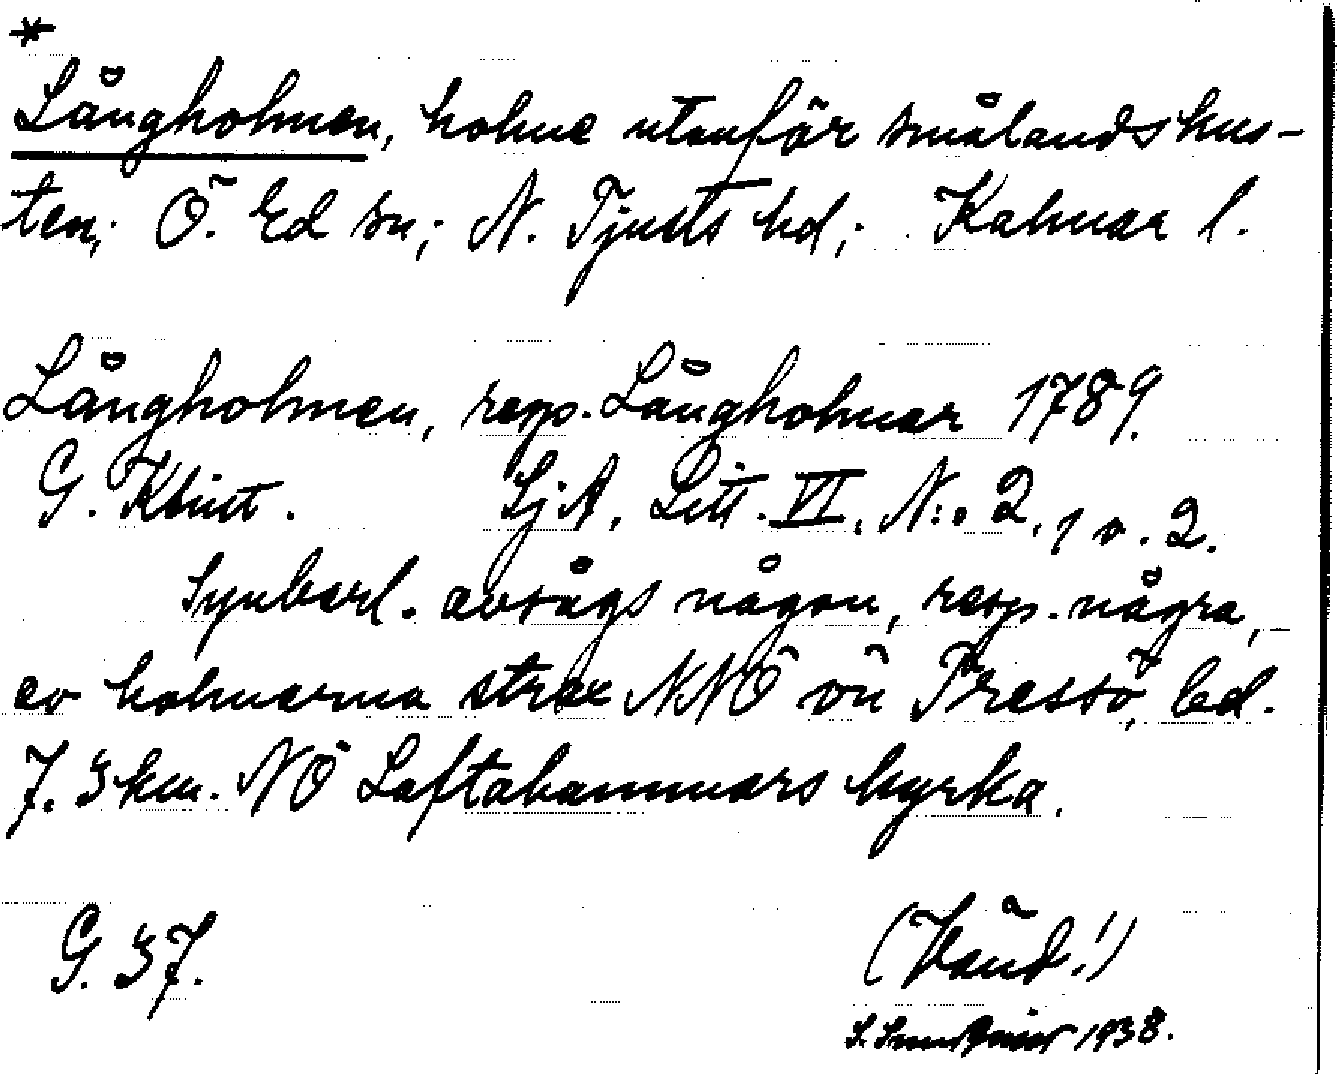 *
Långholmen, holme utanför smålandskus-
ten; Ö. Ed sn; N. Tjusts hd; Kalmar l.
Långholmen, resp. Långholmar 1789.
G. Klint. SjA, Litt. VI, N:o 2, 1 o. 2.
Synbarl. avsågs någon, resp. några,
av holmarna strax NNÖ om Fressö, bel.
7.3 km. NÖ Loftahammars kyrka.
G. 37.
(Vänd!)
1938.